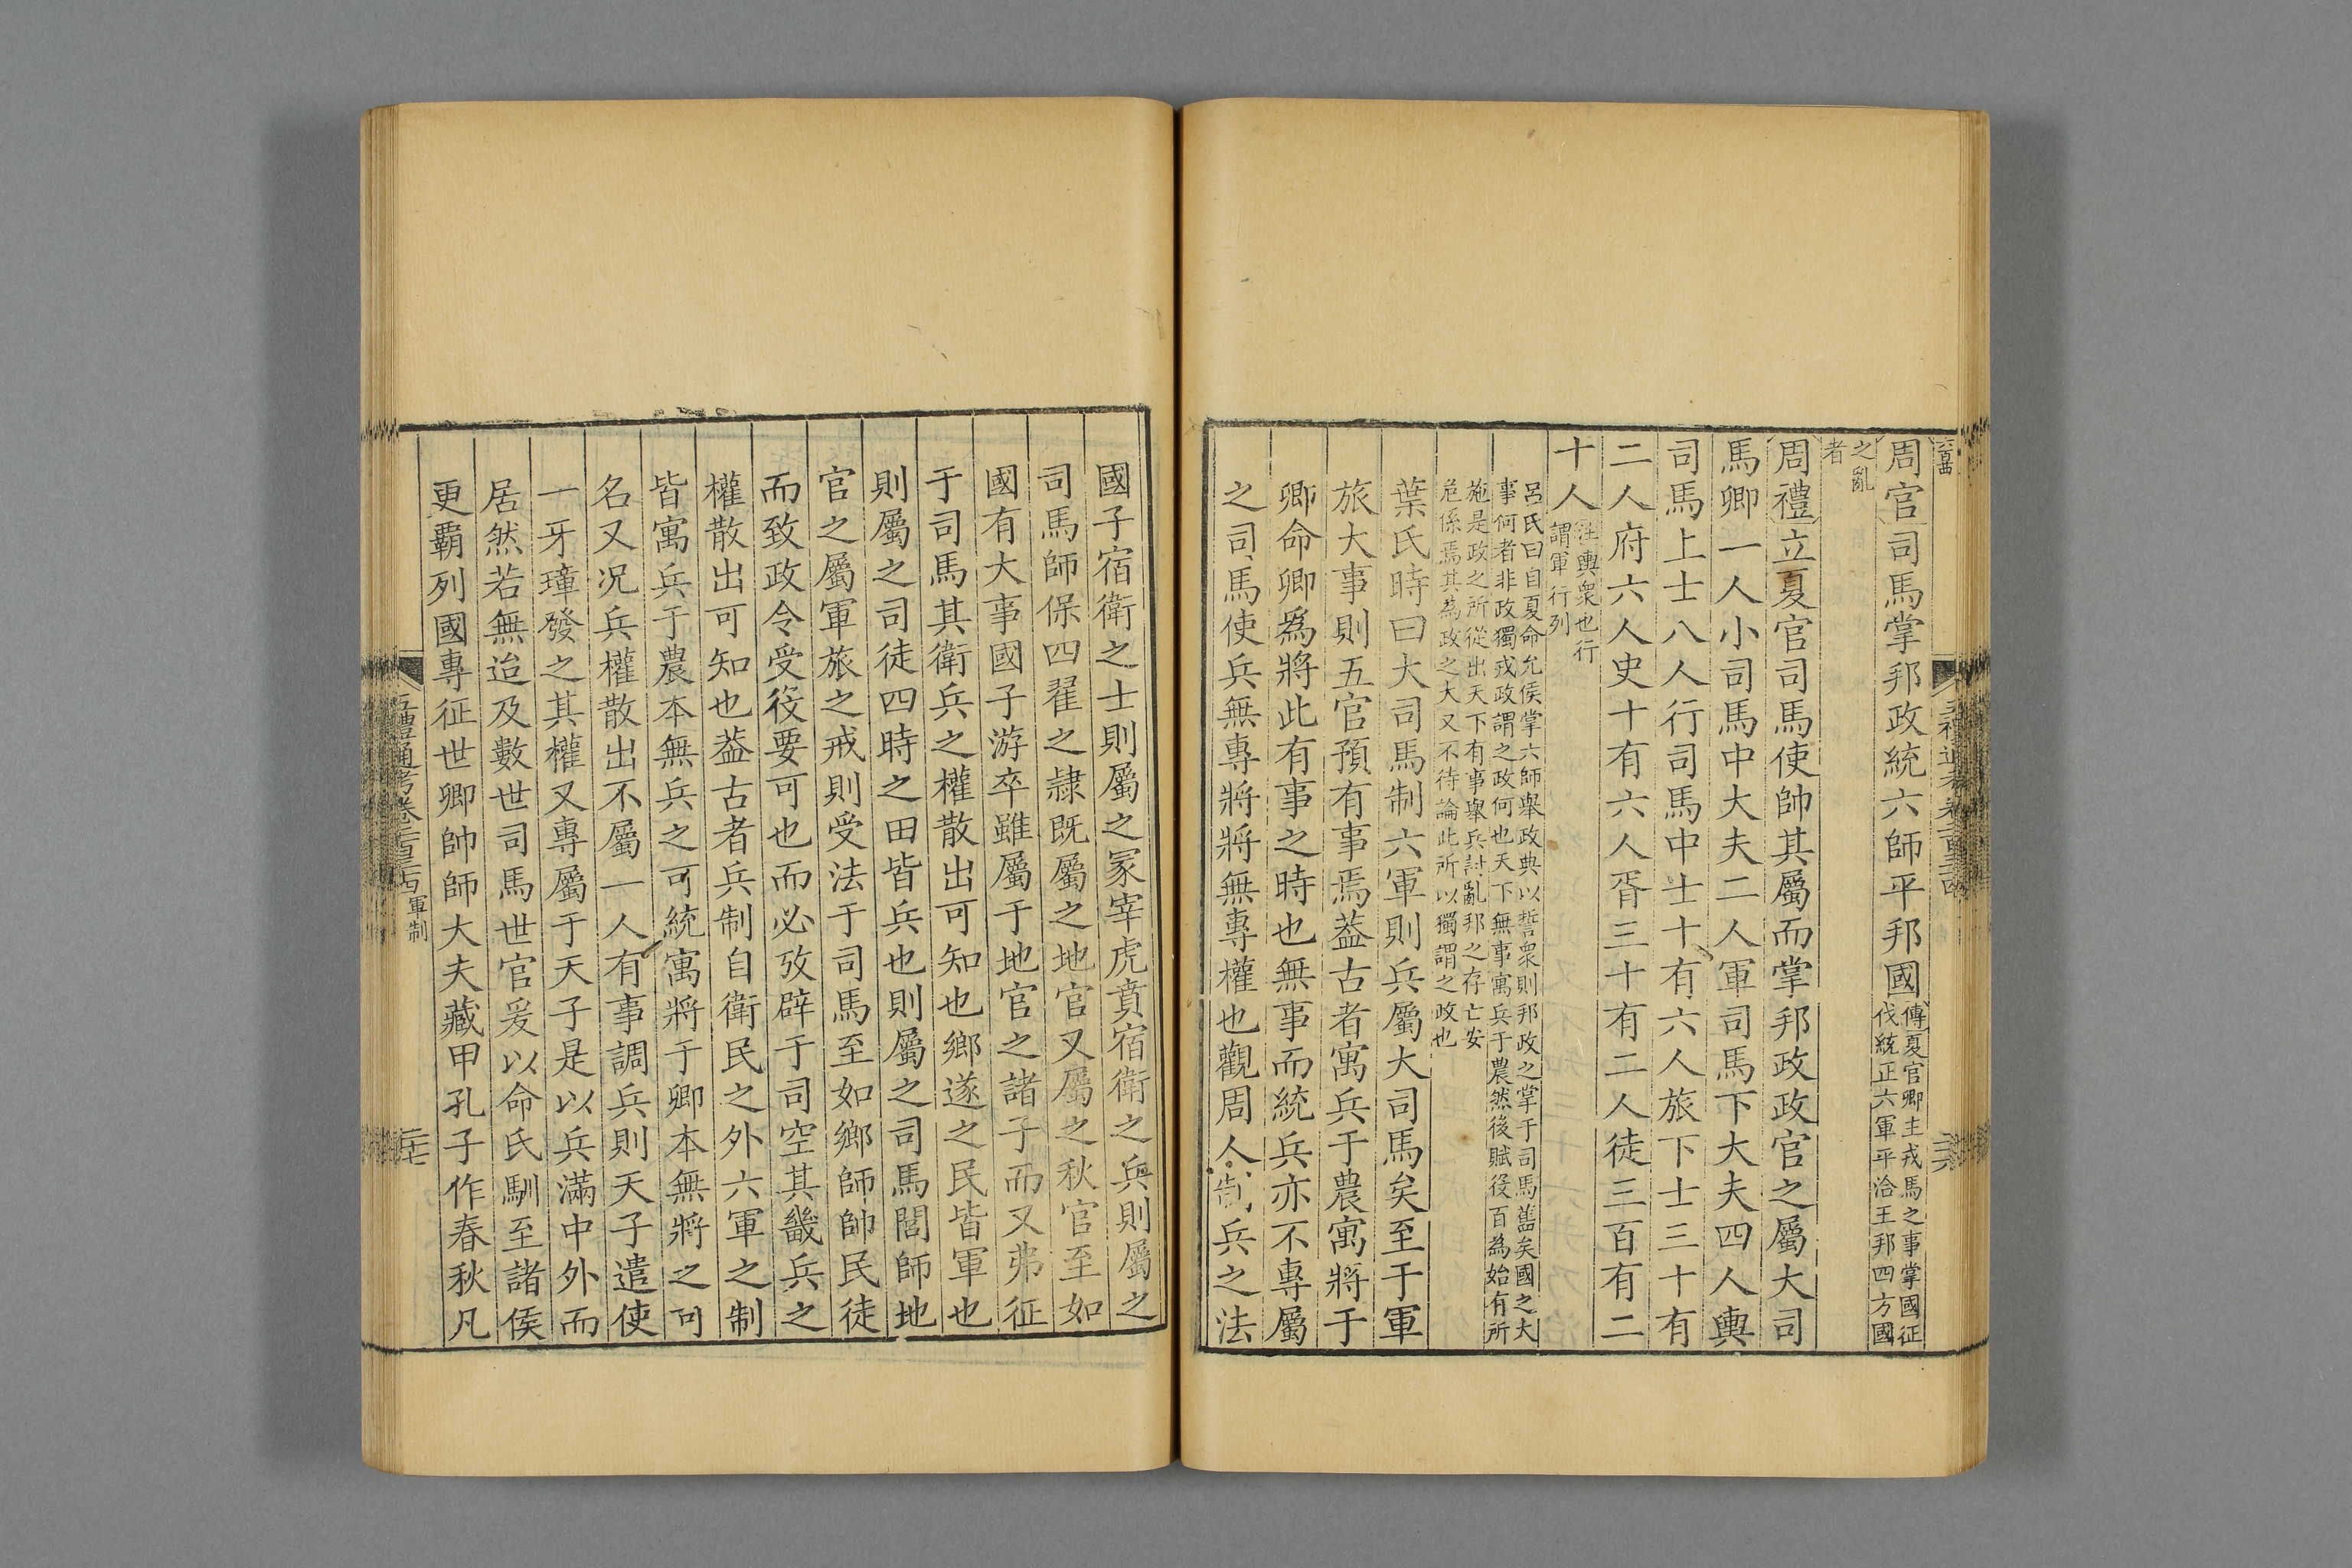 周官司馬掌邦政統六師平邦國傳夏官卿主戎馬之事掌國征
伐統正六軍平治王邦四方國
之亂
者
周禮立夏官司馬使帥其屬而掌邦政政官之屬大司
馬卿一人小司馬中大夫二人軍司馬下大夫四人輿
司馬上士八人行司馬中士十有六人旅下士三十有
二人府六人史十有六人胥三十有二人徒三百有二
十人注輿衆也行
謂軍行列
呂氏曰自夏命允侯掌六師舉政典以誓衆則邦政之掌于司馬舊矣國之大
事何者非政獨戎政謂之政何也天下無事寓兵于農然後賦役百為始有所
施是政之所從出天下有事舉兵討亂邦之存亡安
危係焉其為政之大又不待論此所以獨謂之政也
葉氏時曰大司馬制六軍則兵屬大司馬矣至于軍
旅大事則五官預有事焉葢古者寓兵于農寓將于
卿命卿爲將此有事之時也無事而統兵亦不專屬
之司馬使兵無專將將無專權也觀周人制兵之法
國子宿衛之士則屬之冢宰虎賁宿衛之兵則屬之
司馬師保四翟之隷既屬之地官又屬之秋官至如
國有大事國子游卒雖屬于地官之諸子而又弗征
于司馬其衛兵之權散出可知也鄉遂之民皆軍也
則屬之司徒四時之田皆兵也則屬之司馬閭師地
官之屬軍旅之戒則受法于司馬至如鄉師帥民徒
而致政令受役要可也而必攷辟于司空其畿兵之
權散出可知也葢古者兵制自衛民之外六軍之制
皆寓兵于農本無兵之可統寓將于卿本無將之可
名又况兵權散出不屬一人有事調兵則天子遣使
一牙璋發之其權又專屬于天子是以兵滿中外而
居然若無迨及數世司馬世官爰以命氏馴至諸侯
更霸列國專征世卿帥師大夫藏甲孔子作春秋凡
五禮通考卷二百三十四軍制
二十七